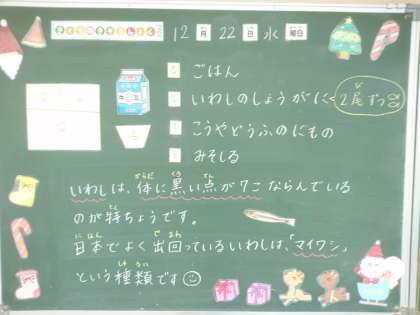 きょうのきゅうしょく 12月 22日 水曜日
ごはん
いわしのしょうがに 2尾ずつ
こうやどうふのにもの
みそしる
いわしは、体に黒い点が7こならんでいる
のが特ちょうです。
日本でよく出回っているいわしは、「マイワシ」
という種類です